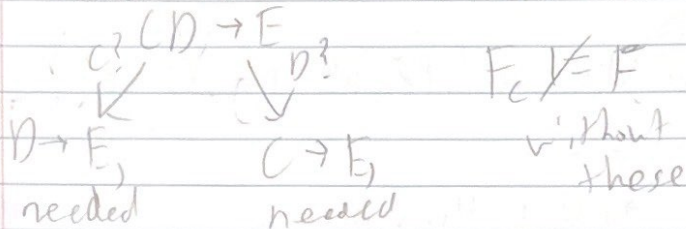 CD → E
C? D?
F_c ⊭ F
D → E, C → E, without
these
needed needed